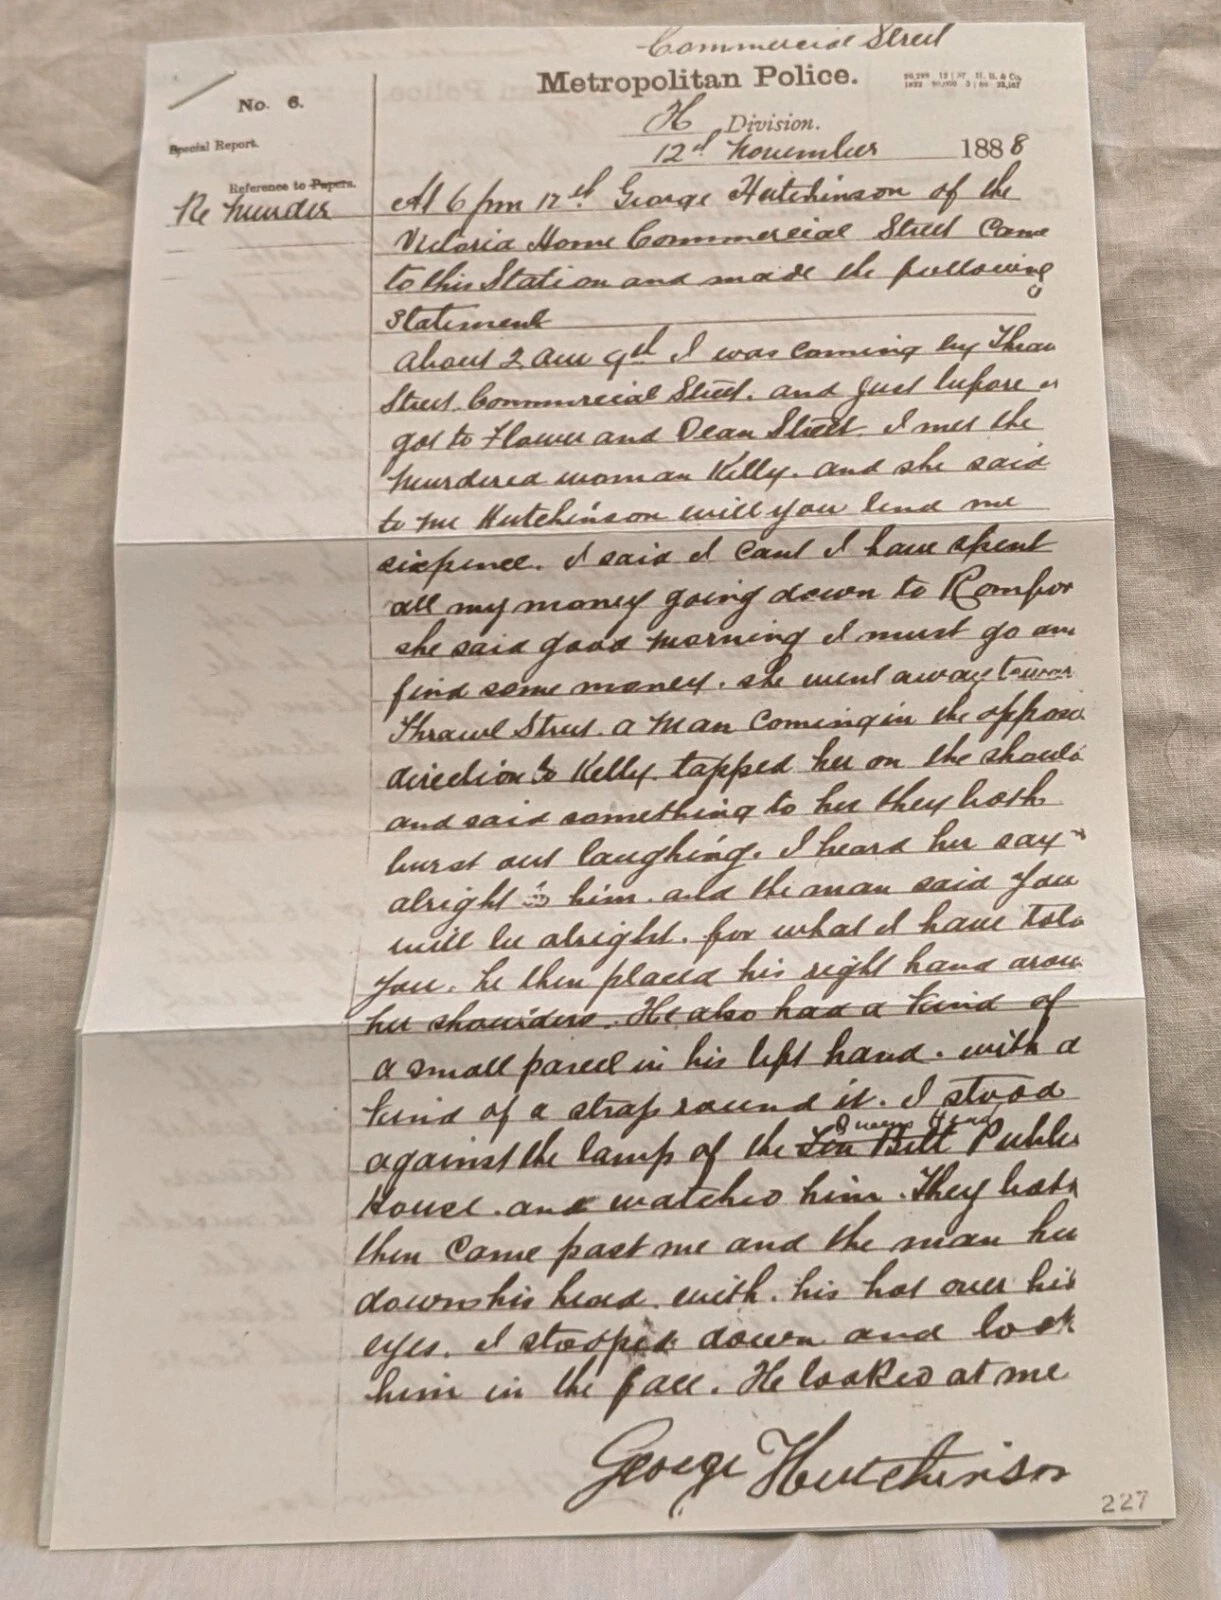 Commercial Street
Metropolitan Police.
No. 6.
H Division.
Special Report.
12th November 1888
Reference to Papers.
Re Murder
At 6 pm 12th George Hutchinson of the
Victoria Home Commercial Street came
to this Station and made the following
Statement
About 2 am 9th I was coming by Thraw
Street. Commercial Street. and just before
got to Flower and Dean Street. I met the
murdered woman Kelly. and she said
to me Hutchinson will you lend me
sixpence. I said I cant I have spent
all my money going down to Romfor
she said good morning I must go an
find some money. she went away towar
Thrawl Street. a man coming in the opposi
direction to Kelly. tapped her on the should
and said something to her they both
burst out laughing. I heard her say
alright to him. and the man said you
will be alright. for what I have told
you. he then placed his right hand arou
her shoulders. He also had a kind of
a small parcel in his left hand. with a
kind of a strap round it. I stood
against the lamp of the Ten Bell Queens Head Public
House. and watched him. They both
then came past me and the man hu
down his head. with. his hat over his
eyes. I stooped down and look
him in the face. He looked at me
George Hutchinson
227